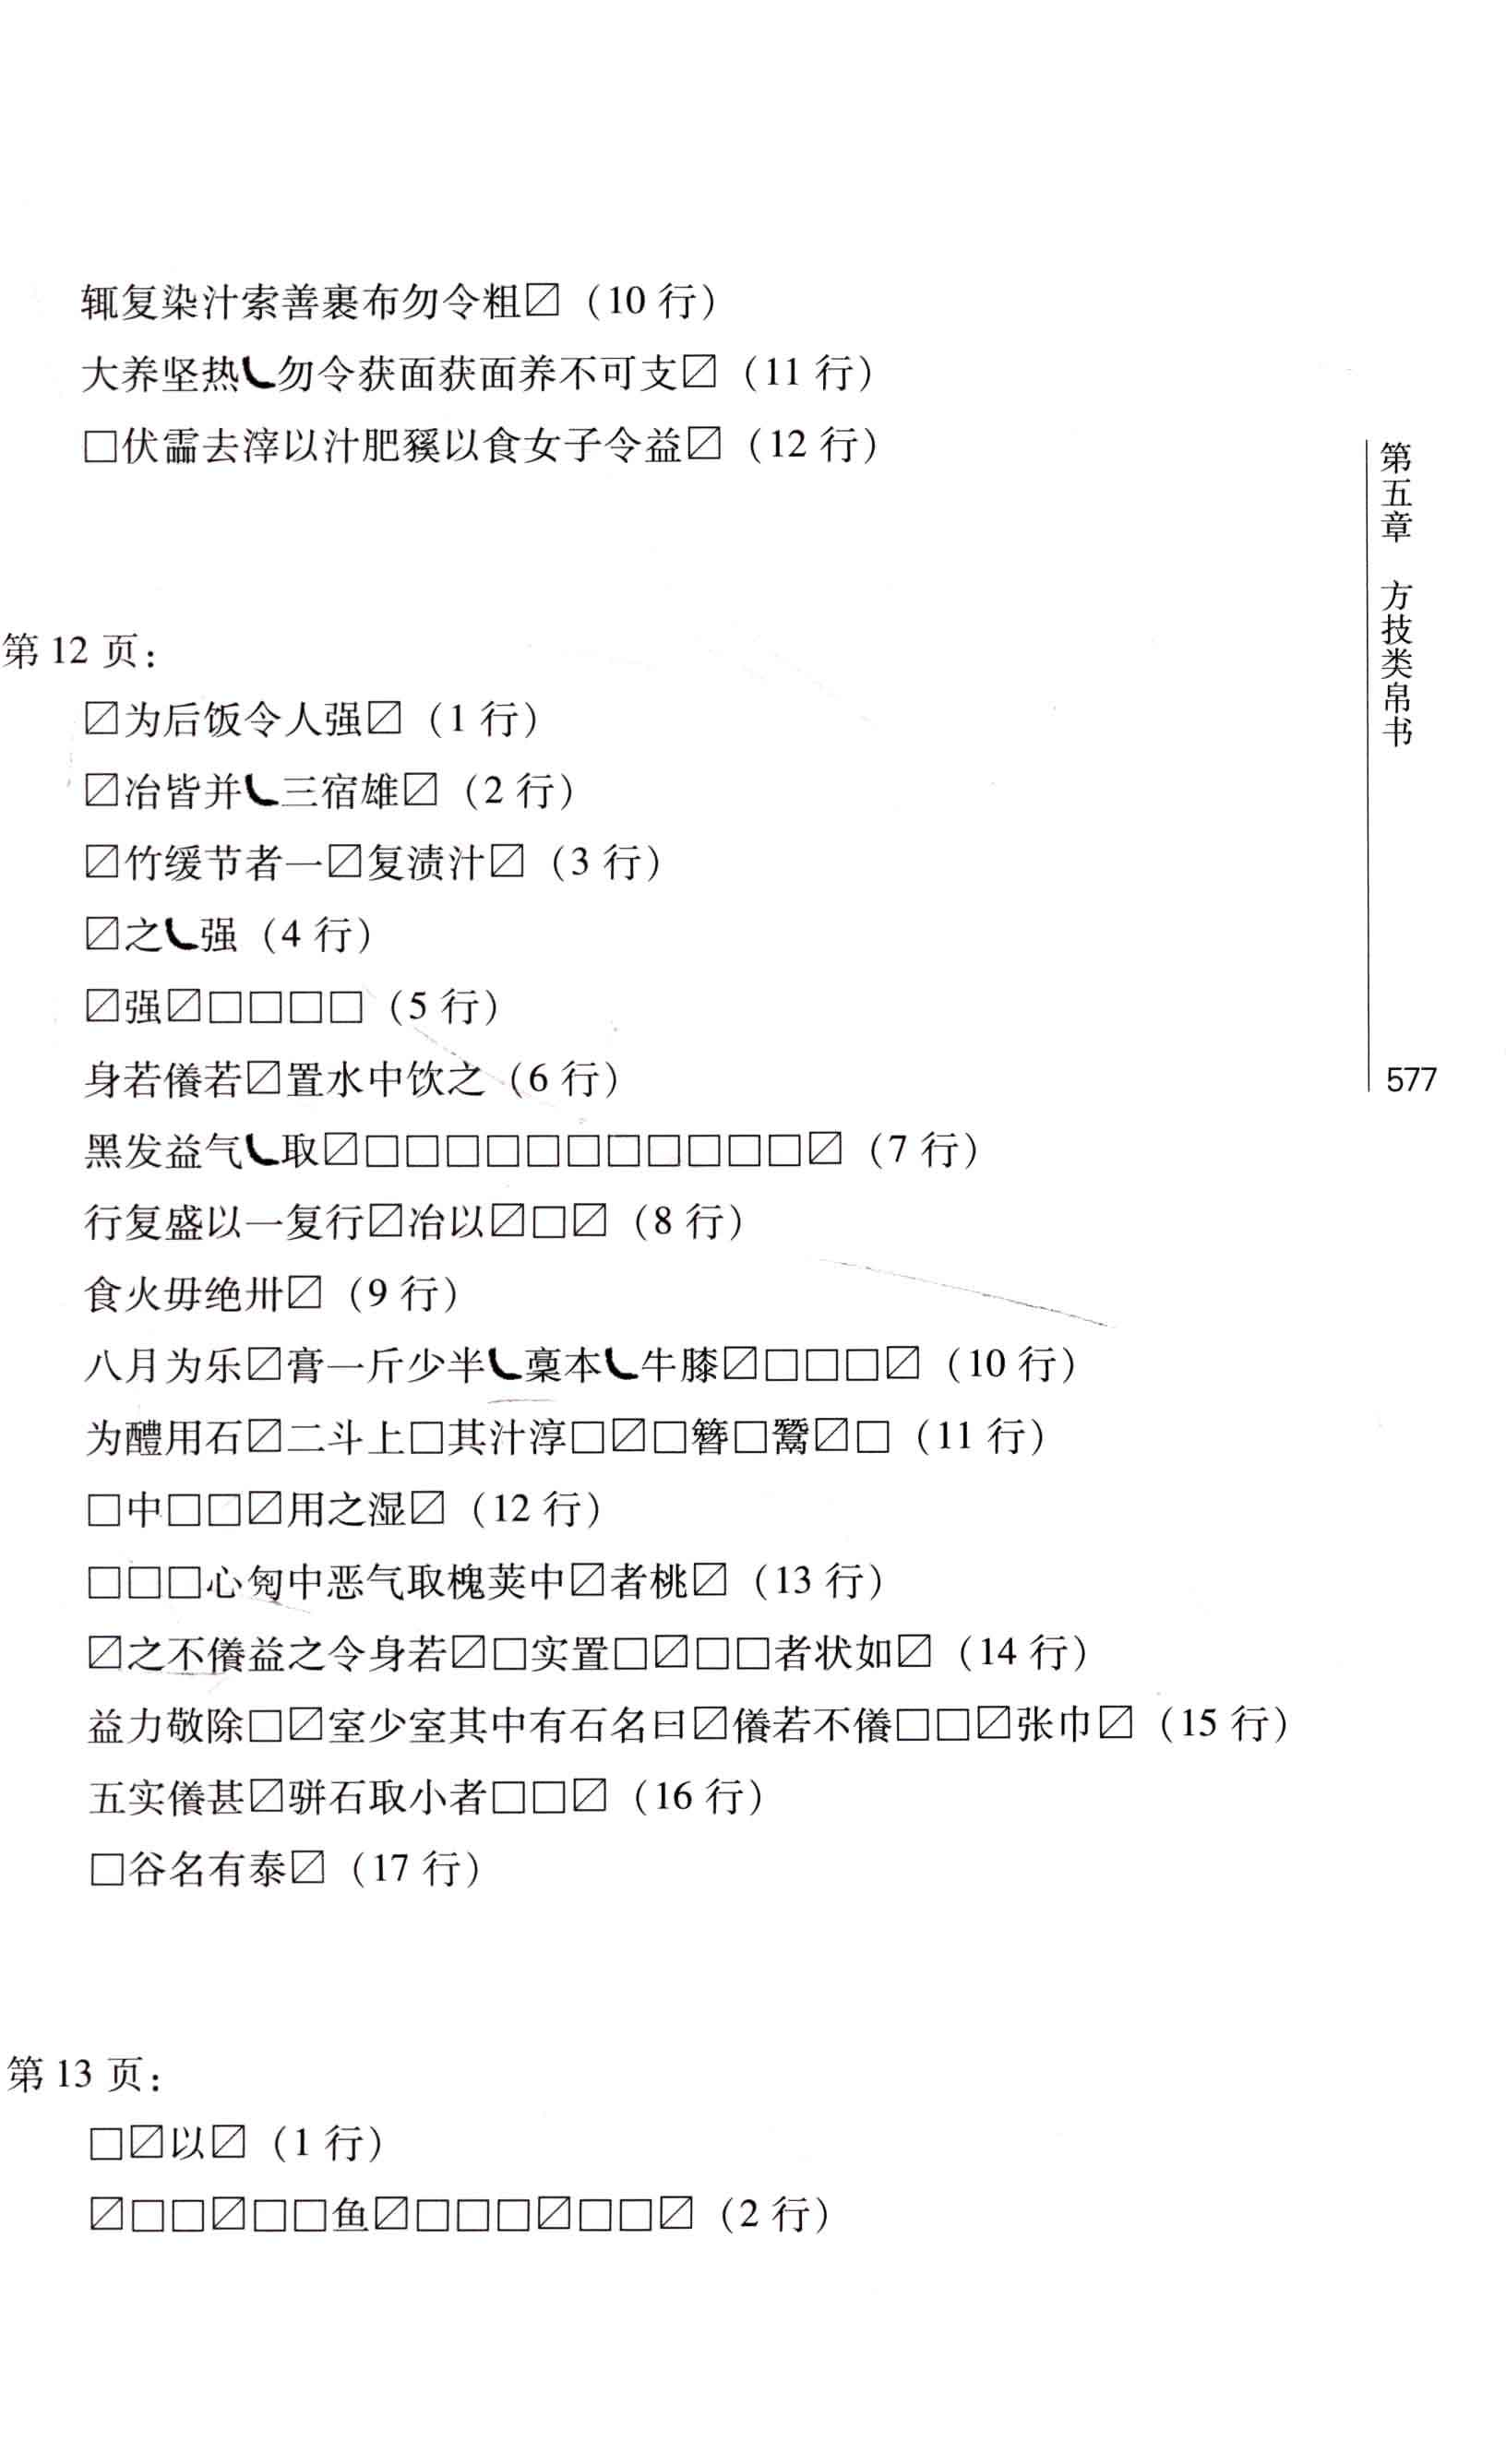 辄复染汁索善裹布勿令粗☑（10 行）
大养坚热㇄勿令获面获面养不可支☑（11 行）
□伏霝去滓以汁肥豯以食女子令益☑（12 行）
第 12 页：
☑为后饭令人强☑（1 行）
☑冶皆并㇄三宿雄☑（2 行）
☑竹缓节者一☑复渍汁☑（3 行）
☑之㇄强（4 行）
☑强☑□□□□（5 行）
身若儀若☑置水中饮之（6 行）
黑发益气㇄取☑□□□□□□□□□□□☑（7 行）
行复盛以一复行☑冶以☑□☑（8 行）
食火毋绝卅☑（9 行）
八月为乐☑膏一斤少半㇄稾本㇄牛膝☑□□□☑（10 行）
为醴用石☑二斗上□其汁淳□☑□簪□鷩☑□（11 行）
□中□□☑用之湿☑（12 行）
□□□心匈中恶气取槐荚中☑者桃☑（13 行）
☑之不儀益之令身若☑□实置□☑□□者状如☑（14 行）
益力敬除□☑室少室其中有石名曰☑儀若不儀□□☑张巾☑（15 行）
五实儀甚☑骈石取小者□□☑（16 行）
□谷名有泰☑（17 行）
第 13 页：
□☑以☑（1 行）
☑□□☑□□鱼☑□□□☑□□☑（2 行）
第五章 方技类帛书
577